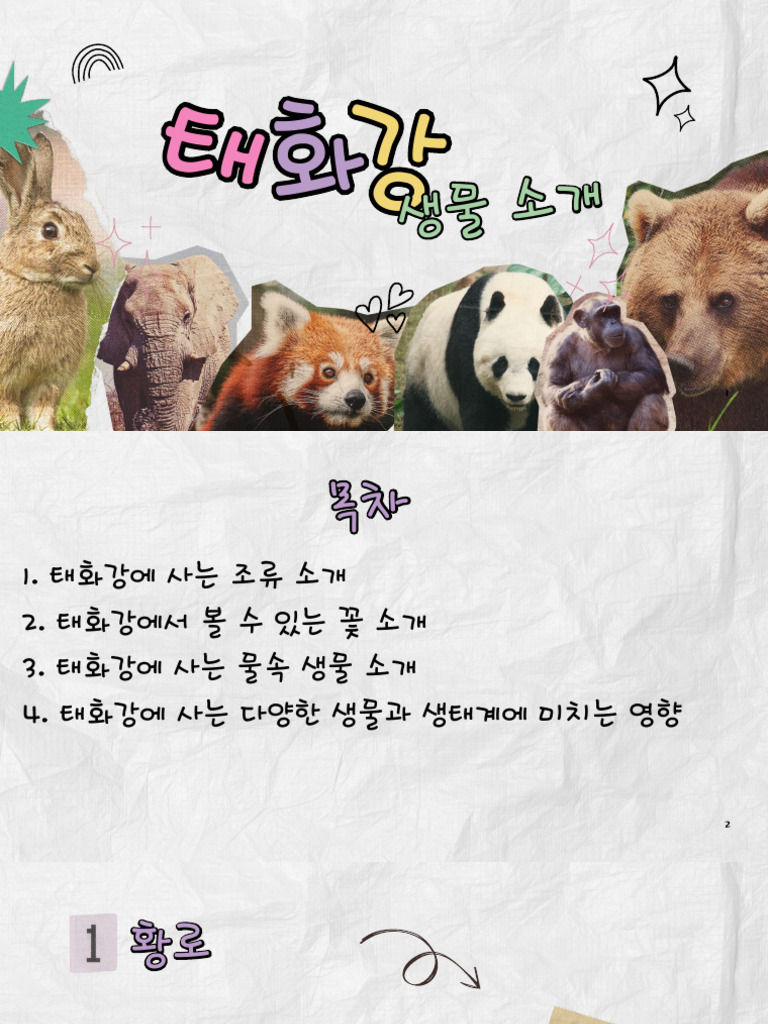 태화강
생물 소개
목차
1. 태화강에 사는 조류 소개
2. 태화강에서 볼 수 있는 꽃 소개
3. 태화강에 사는 물속 생물 소개
4. 태화강에 사는 다양한 생물과 생태계에 미치는 영향
2
1 황로